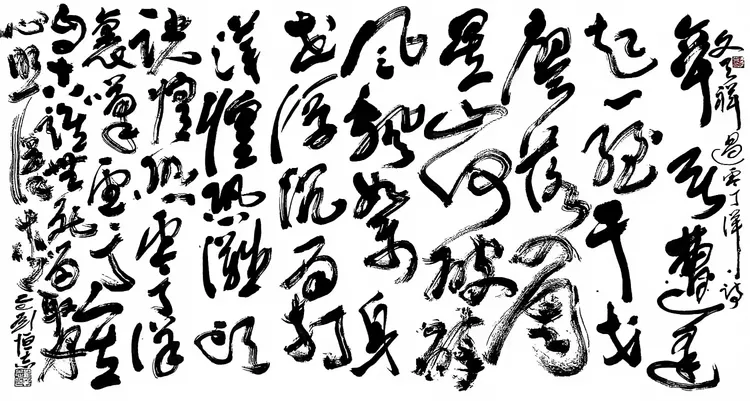 文天祥過零丁洋詩
辛苦遭逢
起一經干戈
寥落四周
星山河破碎
風飄絮身
世浮沉雨打
萍惶恐灘頭
說惶恐零丁洋
裏嘆零丁人生
自古誰無死留取丹
心照汗青